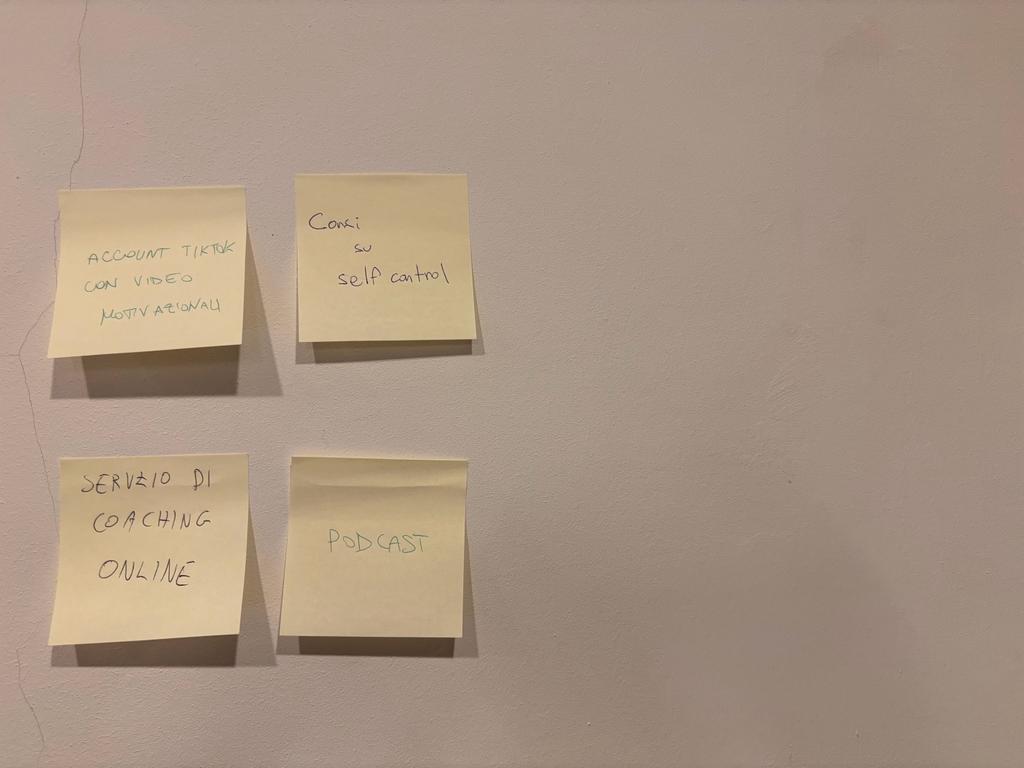 ACCOUNT TIKTOK
CON VIDEO
MOTIVAZIONALI
Corsi
su
self control
SERVIZIO DI
COACHING
ONLINE
PODCAST